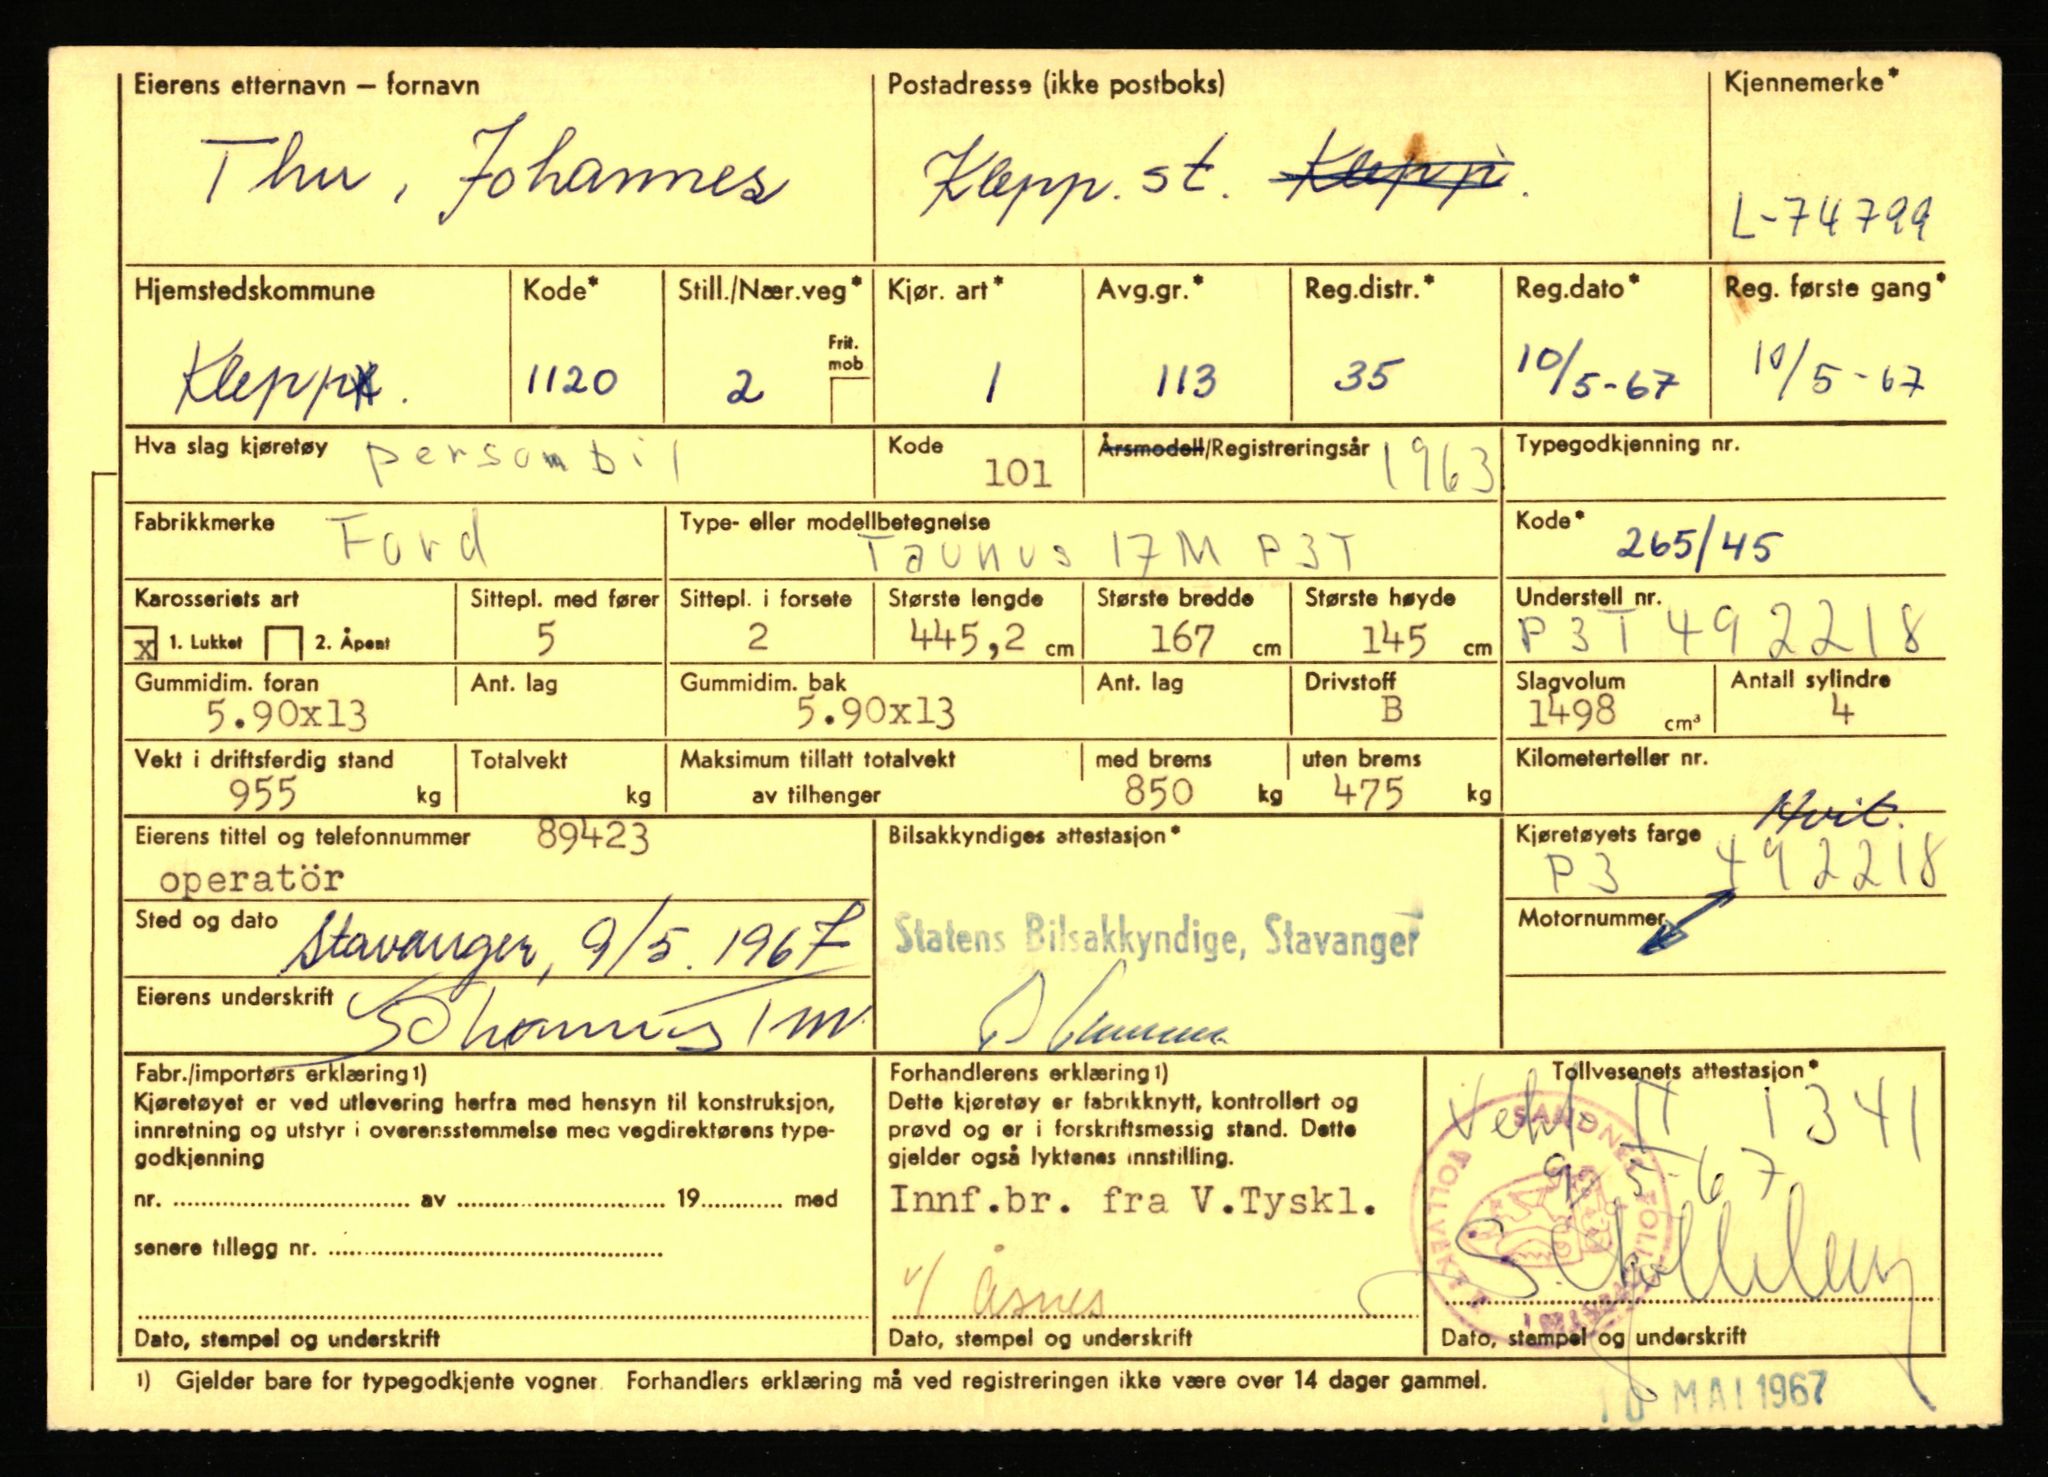 Eierens etternavn — fornavn Postadresse (ikke postboks) Kjennemerke*
Thu, Johannes Klepp. st. Klepp. L-74799
Hjemstedskommune Kode* Still./Nær.veg* Kjør. art* Avg.gr.* Reg.distr.* Reg.dato* Reg. første gang*
Frit. mob
Klepp. 1120 2 1 113 35 10/5-67 10/5-67
Hva slag kjøretøy personbil Kode 101 Årsmodell/Registreringsår 1963 Typegodkjenning nr.
Fabrikkmerke Ford Type- eller modellbetegnelse Taunus 17M P3T Kode* 265/45
Karosseriets art Sittepl. med fører Sittepl. i forsete Største lengde Største bredde Største høyde Understell nr.
x 1. Lukket 2. Åpent 5 2 445,2 cm 167 cm 145 cm P3T492218
Gummidim. foran Ant. lag Gummidim. bak Ant. lag Drivstoff Slagvolum Antall sylindre
5.90x13 5.90x13 B 1498 cm³ 4
Vekt i driftsferdig stand Totalvekt Maksimum tillatt totalvekt med brems uten brems Kilometerteller nr.
955 kg kg av tilhenger 850 kg 475 kg
Eierens tittel og telefonnummer 89423 Bilsakkyndiges attestasjon* Kjøretøyets farge Hvit.
operatör P3 492218
Sted og dato Stavanger, 9/5. 1967 Statens Bilsakkyndige, Stavanger Motornummer
Eierens underskrift Johannes Thu
Fabr./importørs erklæring 1) Forhandlerens erklæring 1) Tollvesenets attestasjon*
Kjøretøyet er ved utlevering herfra med hensyn til konstruksjon, Dette kjøretøy er fabrikknytt, kontrollert og 1341
innretning og utstyr i overensstemmelse med vegdirektørens type- prøvd og er i forskriftsmessig stand. Dette
godkjenning gjelder også lyktenes innstilling. 9/5-67
nr. av 19 med Innf.br. fra V.Tyskl.
senere tillegg nr.
v/ Åsnes
Dato, stempel og underskrift Dato, stempel og underskrift Dato, stempel og underskrift
1) Gjelder bare for typegodkjente vogner. Forhandlers erklæring må ved registreringen ikke være over 14 dager gammel.
10 MAI 1967